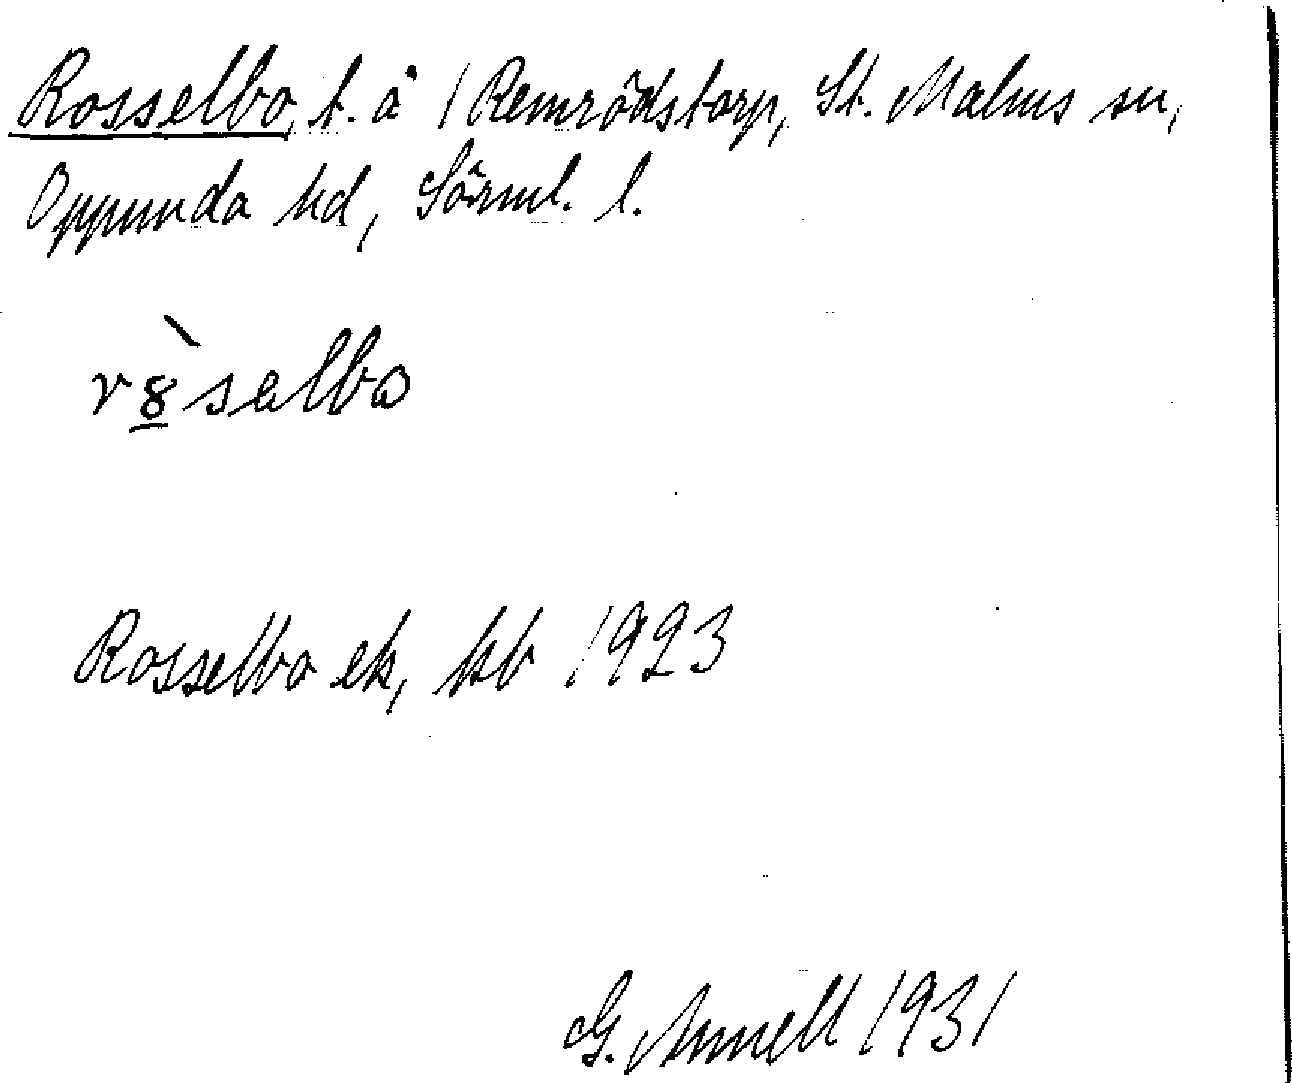 Rosselbo, t. å / Remrödstorp, St. Malms sn,
Oppunda hd, Sörml. l.
rȣ̀selbo
Rosselbo ek, kb 1923
G. Annell 1931